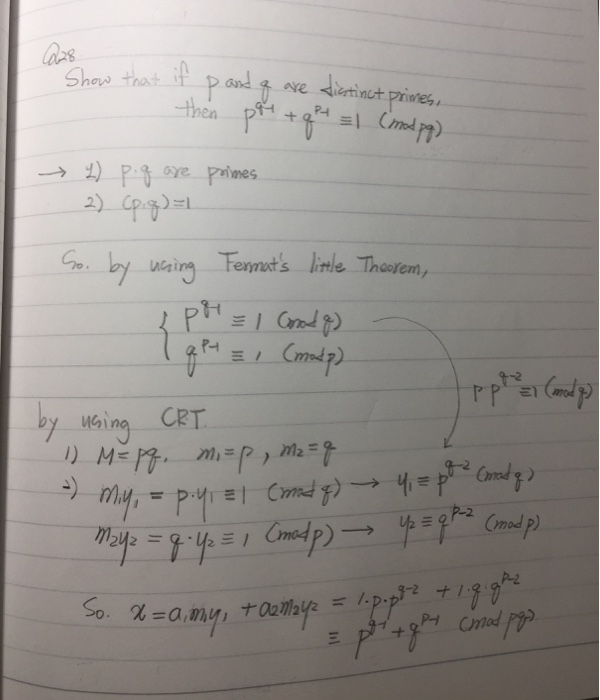 Q28
Show that if p and q are distinct primes,
then p^{q-1} + q^{p-1} ≡ 1 (mod pq)
→ 1) p.q are primes
2) (p.q)=1
So. by using Fermat's little Theorem,
{ p^{q-1} ≡ 1 (mod q)
q^{p-1} ≡ 1 (mod p)
p p^{q-2} ≡ 1 (mod q)
by using CRT.
1) M = pq. m₁ = p, m₂ = q
2) m₁y₁ = p·y₁ ≡ 1 (mod q) → y₁ ≡ p^{q-2} (mod q)
m₂y₂ = q·y₂ ≡ 1 (mod p) → y₂ ≡ q^{p-2} (mod p)
So. x = a₁m₁y₁ + a₂m₂y₂ = 1·p·p^{q-2} + 1·q·q^{p-2}
≡ p^{q-1} + q^{p-1} (mod pq)